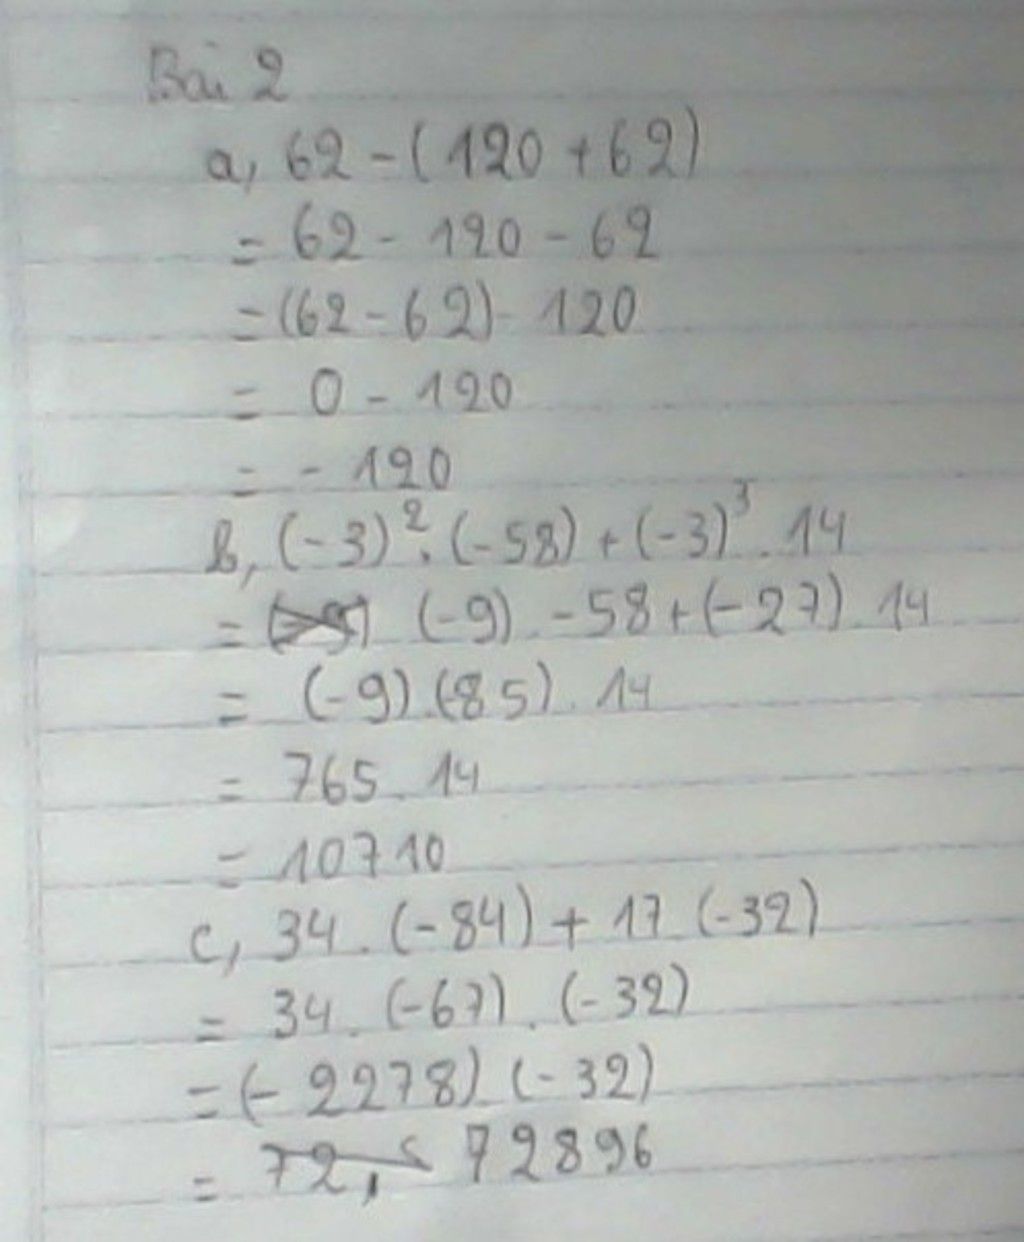 Bài 2
a, 62 - (120 + 62)
= 62 - 120 - 62
= (62 - 62) - 120
= 0 - 120
= - 120
b, (-3)². (-58) + (-3)³ . 14
= (-9) . -58 + (-27) . 14
= (-9) . (85) . 14
= 765 . 14
= 10710
c, 34 . (-84) + 17 . (-32)
= 34 . (-67) . (-32)
= (- 2278) . (-32)
= 72896